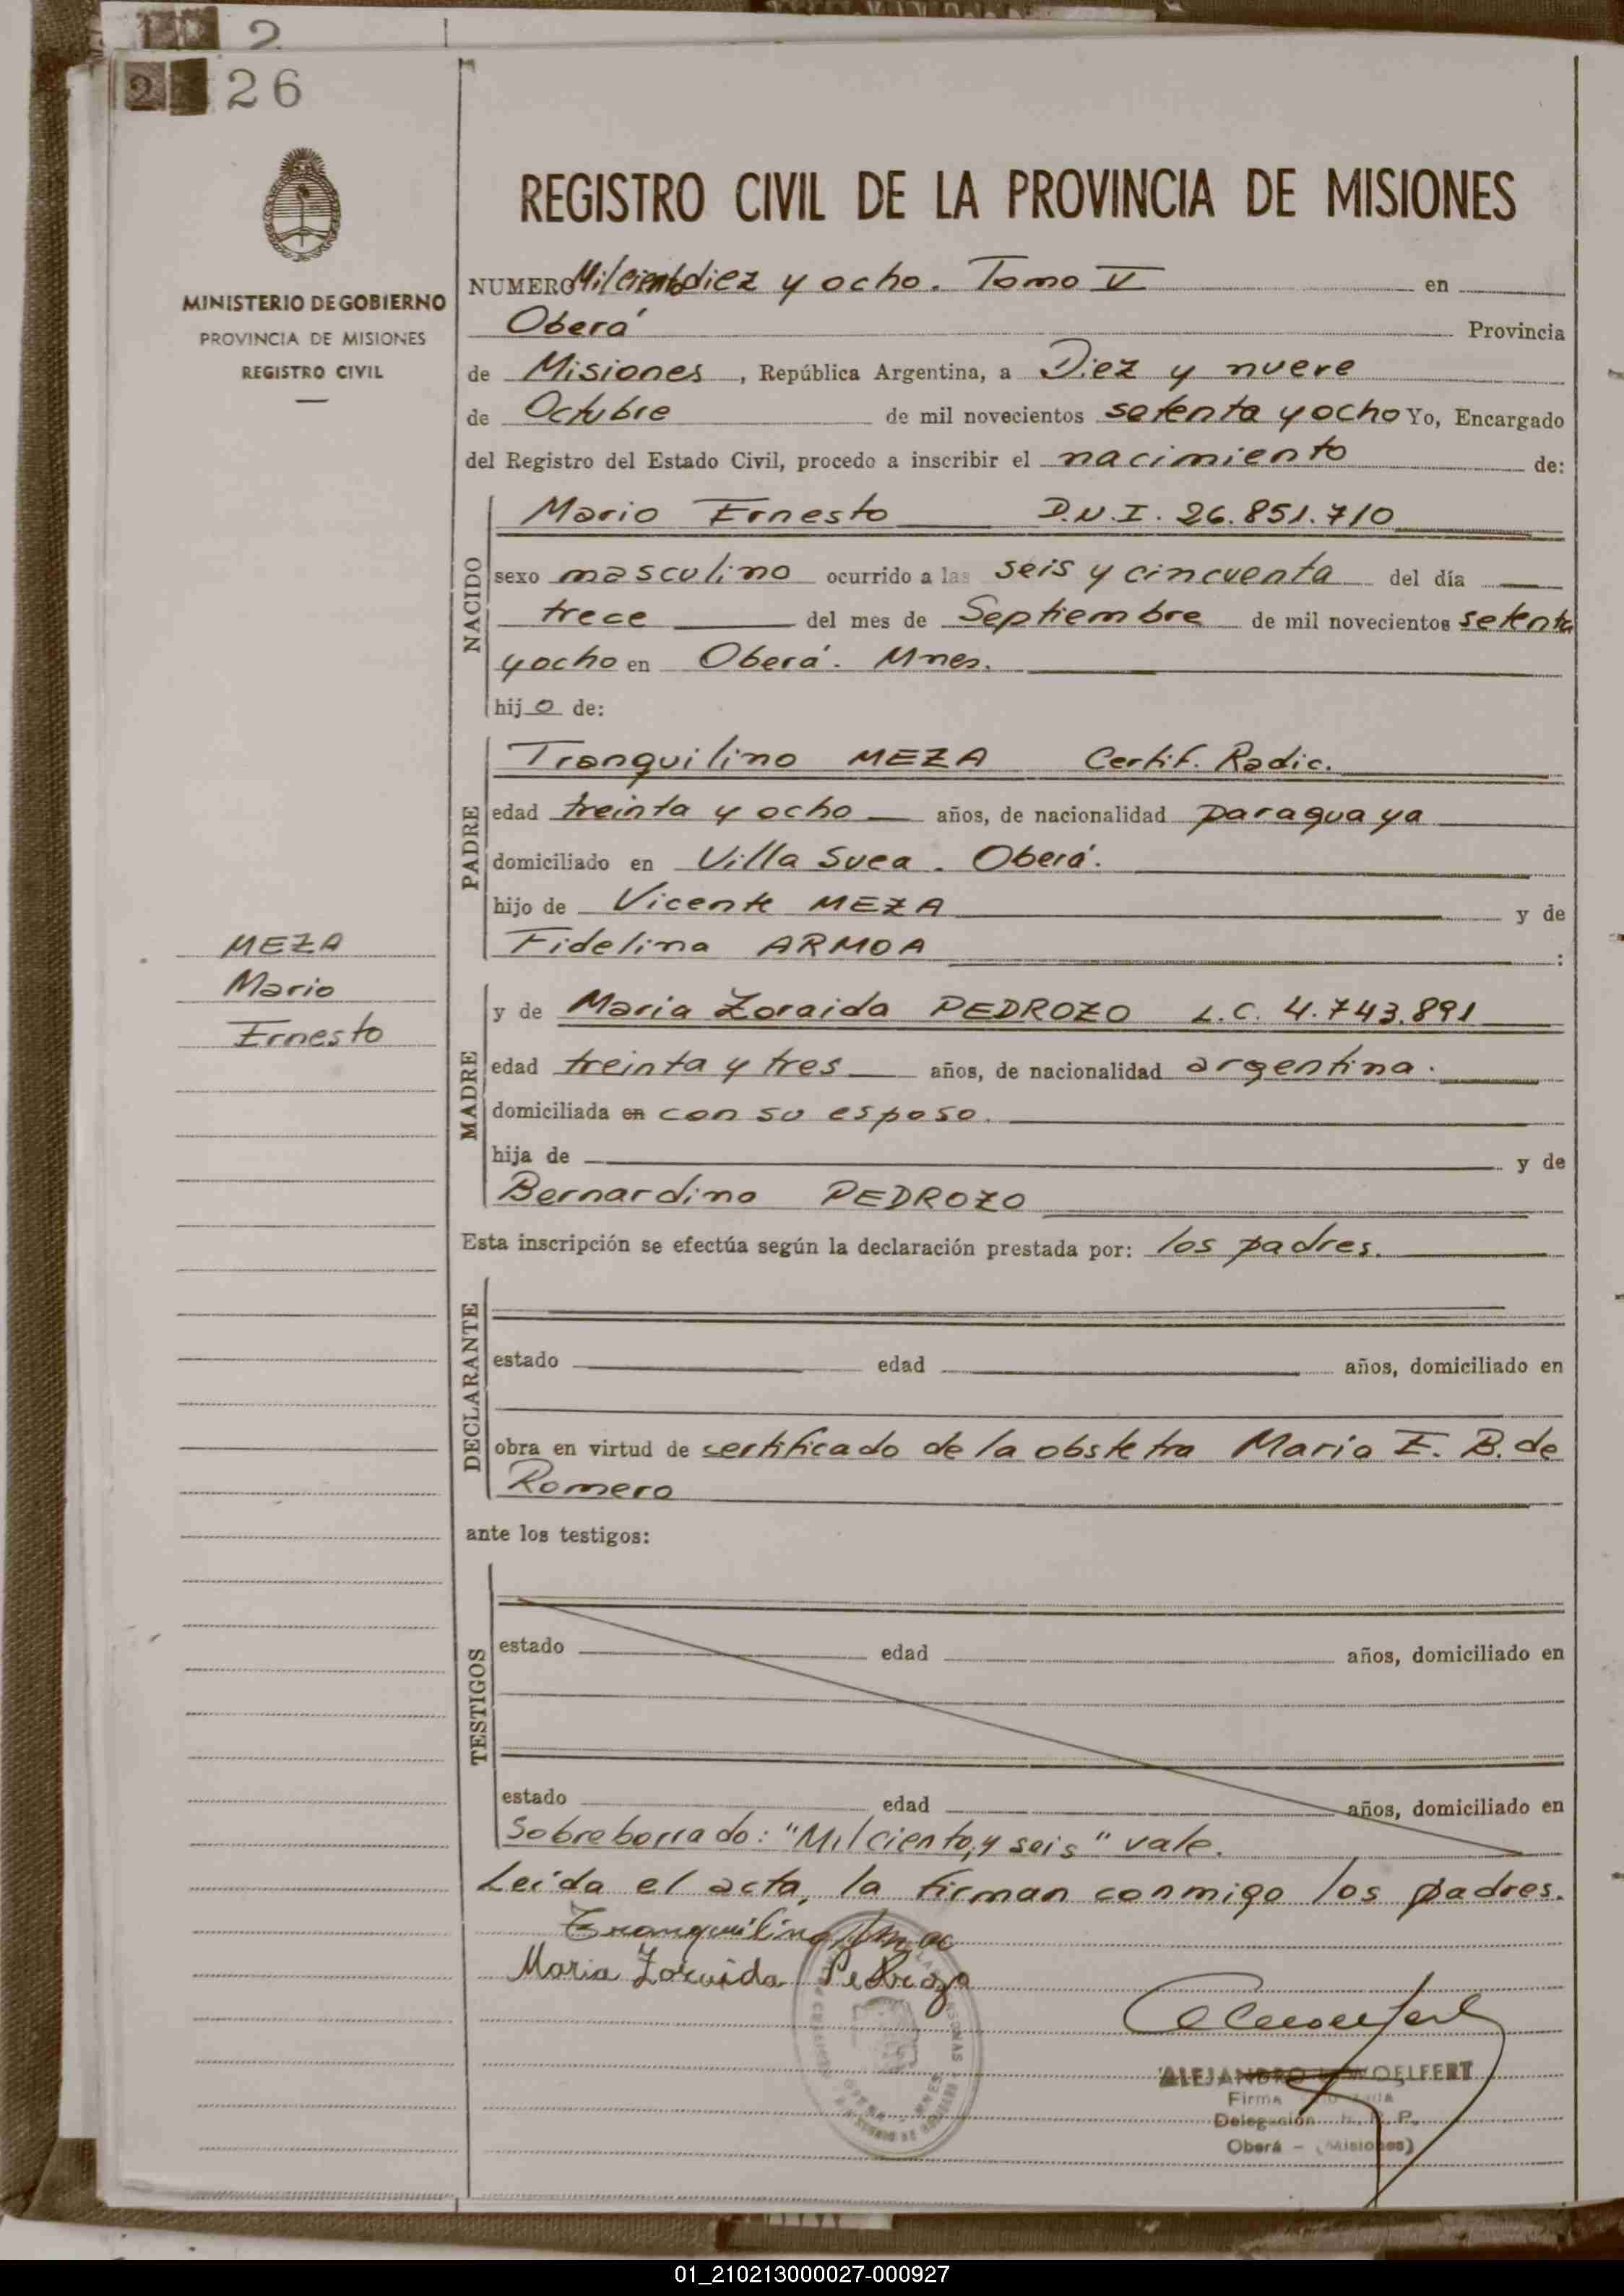 2
2 26
MINISTERIO DE GOBIERNO
PROVINCIA DE MISIONES
REGISTRO CIVIL
MEZA
Mario
Ernesto
REGISTRO CIVIL DE LA PROVINCIA DE MISIONES
NUMERO Milciento diez y ocho. Tomo V en
Oberá Provincia
de Misiones, República Argentina, a Diez y nueve
de Octubre de mil novecientos setenta y ocho Yo, Encargado
del Registro del Estado Civil, procedo a inscribir el nacimiento de:
NACIDO
Mario Ernesto D.N.I. 26.851.710
sexo masculino ocurrido a las seis y cincuenta del día
trece del mes de Septiembre de mil novecientos setenta
y ocho en Oberá. Mnes.
hijo de:
PADRE
Tranquilino MEZA Certif. Radic.
edad treinta y ocho años, de nacionalidad paraguaya
domiciliado en Villa Svea. Oberá.
hijo de Vicente MEZA y de
Fidelina ARMOA :
MADRE
y de Maria Zoraida PEDROZO L.C. 4.743.891
edad treinta y tres años, de nacionalidad argentina.
domiciliada en con su esposo.
hija de y de
Bernardina PEDROZO
Esta inscripción se efectúa según la declaración prestada por: los padres.
DECLARANTE
estado edad años, domiciliado en
obra en virtud de certificado de la obstetra Maria E. B. de
Romero
ante los testigos:
TESTIGOS
estado edad años, domiciliado en
estado edad años, domiciliado en
Sobreborrado: "Milciento, y seis" vale.
Leida el acta, la firman conmigo los padres.
Tranquilino
Maria Zoraida Pedrozo
ALEJANDRO WOELFERT
Firma
Delegación R. P.
Oberá - (Misiones)
01_210213000027-000927